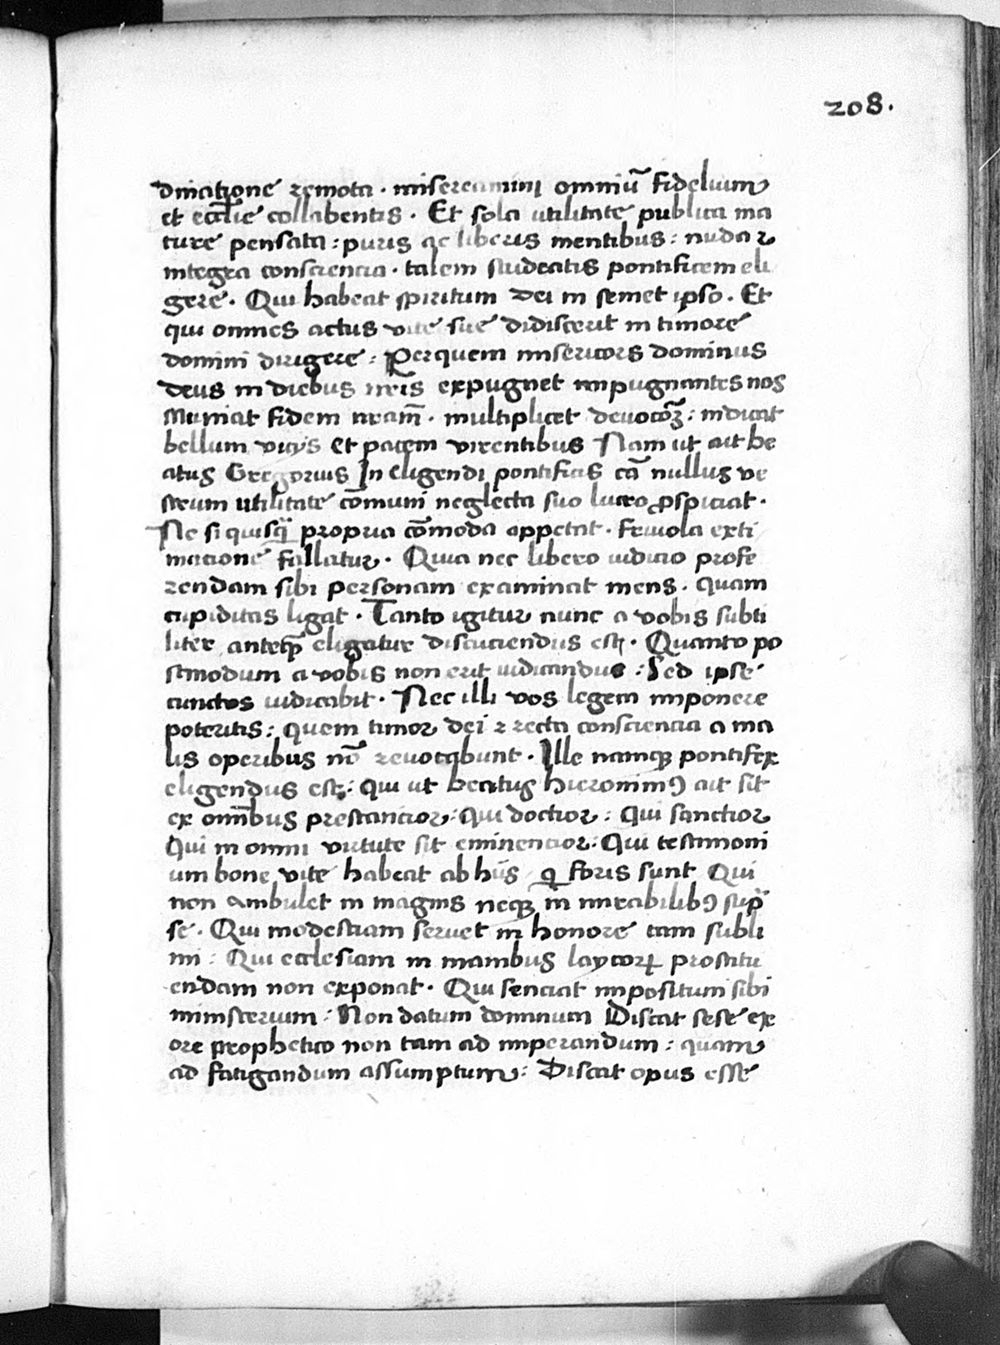 208.
dinatione remota · misereamini omniū fidelium
et eccl̄ie collabentis · Et sola utilitate publica ma
ture pensata : puris ac liberis mentibus : nuda ⁊
integra consciencia · talem studeatis pontificem eli
gere · Qui habeat spiritum dei in semet ipso · Et
qui omnes actus vite sue didiscerit in timore
domini dirigere : Per quem misericors dominus
deus in diebus nr̄is expugnet impugnantes nos
Muniat fidem nram̄ · multiplicet deuocōꝫ : indicat
bellum vicijs et pacem virentibus Nam ut ait be
atus Gregorius In eligendi pontificis cā nullus ve
strum utilitate cōmuni neglecta suo lucro ꝓspiciat ·
Ne si quisq̄ propria cōmoda appetat · friuola exti
macione fallatur · Quia nec libero iudicio profe
rendam sibi personam examinat mens · quam
cupiditas ligat · Tanto igitur nunc a vobis subti
liter anteq̄ eligatur discuciendus est · Quanto po
stmodum a vobis non erit iudicandus : Sed ipse
cunctos iudicabit · Nec illi vos legem imponere
poteritis : quem timor dei ⁊ recta consciencia a ma
lis operibus nō reuocabunt · Ille namqꝫ pontifex
eligendus est : qui ut beatus hieronimꝰ ait sit
ex omībus prestancior : qui doctior : Qui sanctior
Qui in omni virtute sit eminencior : Qui testimoni
um bone vite habeat ab hijs q̄ foris sunt Qui
non ambulet in magnis neqꝫ in mirabilibꝰ sup̄
se · Qui modestiam seruet in honore tam subli
mi : Qui ecclesiam in manibus laycorꝝ prostitu
endam non exponat · Qui senciat impositum sibi
ministerium : Non datum dominium Discat sese ex
ore prophetico non tam ad imperandum : quam
ad fatigandum assumptum : Discat opus esse